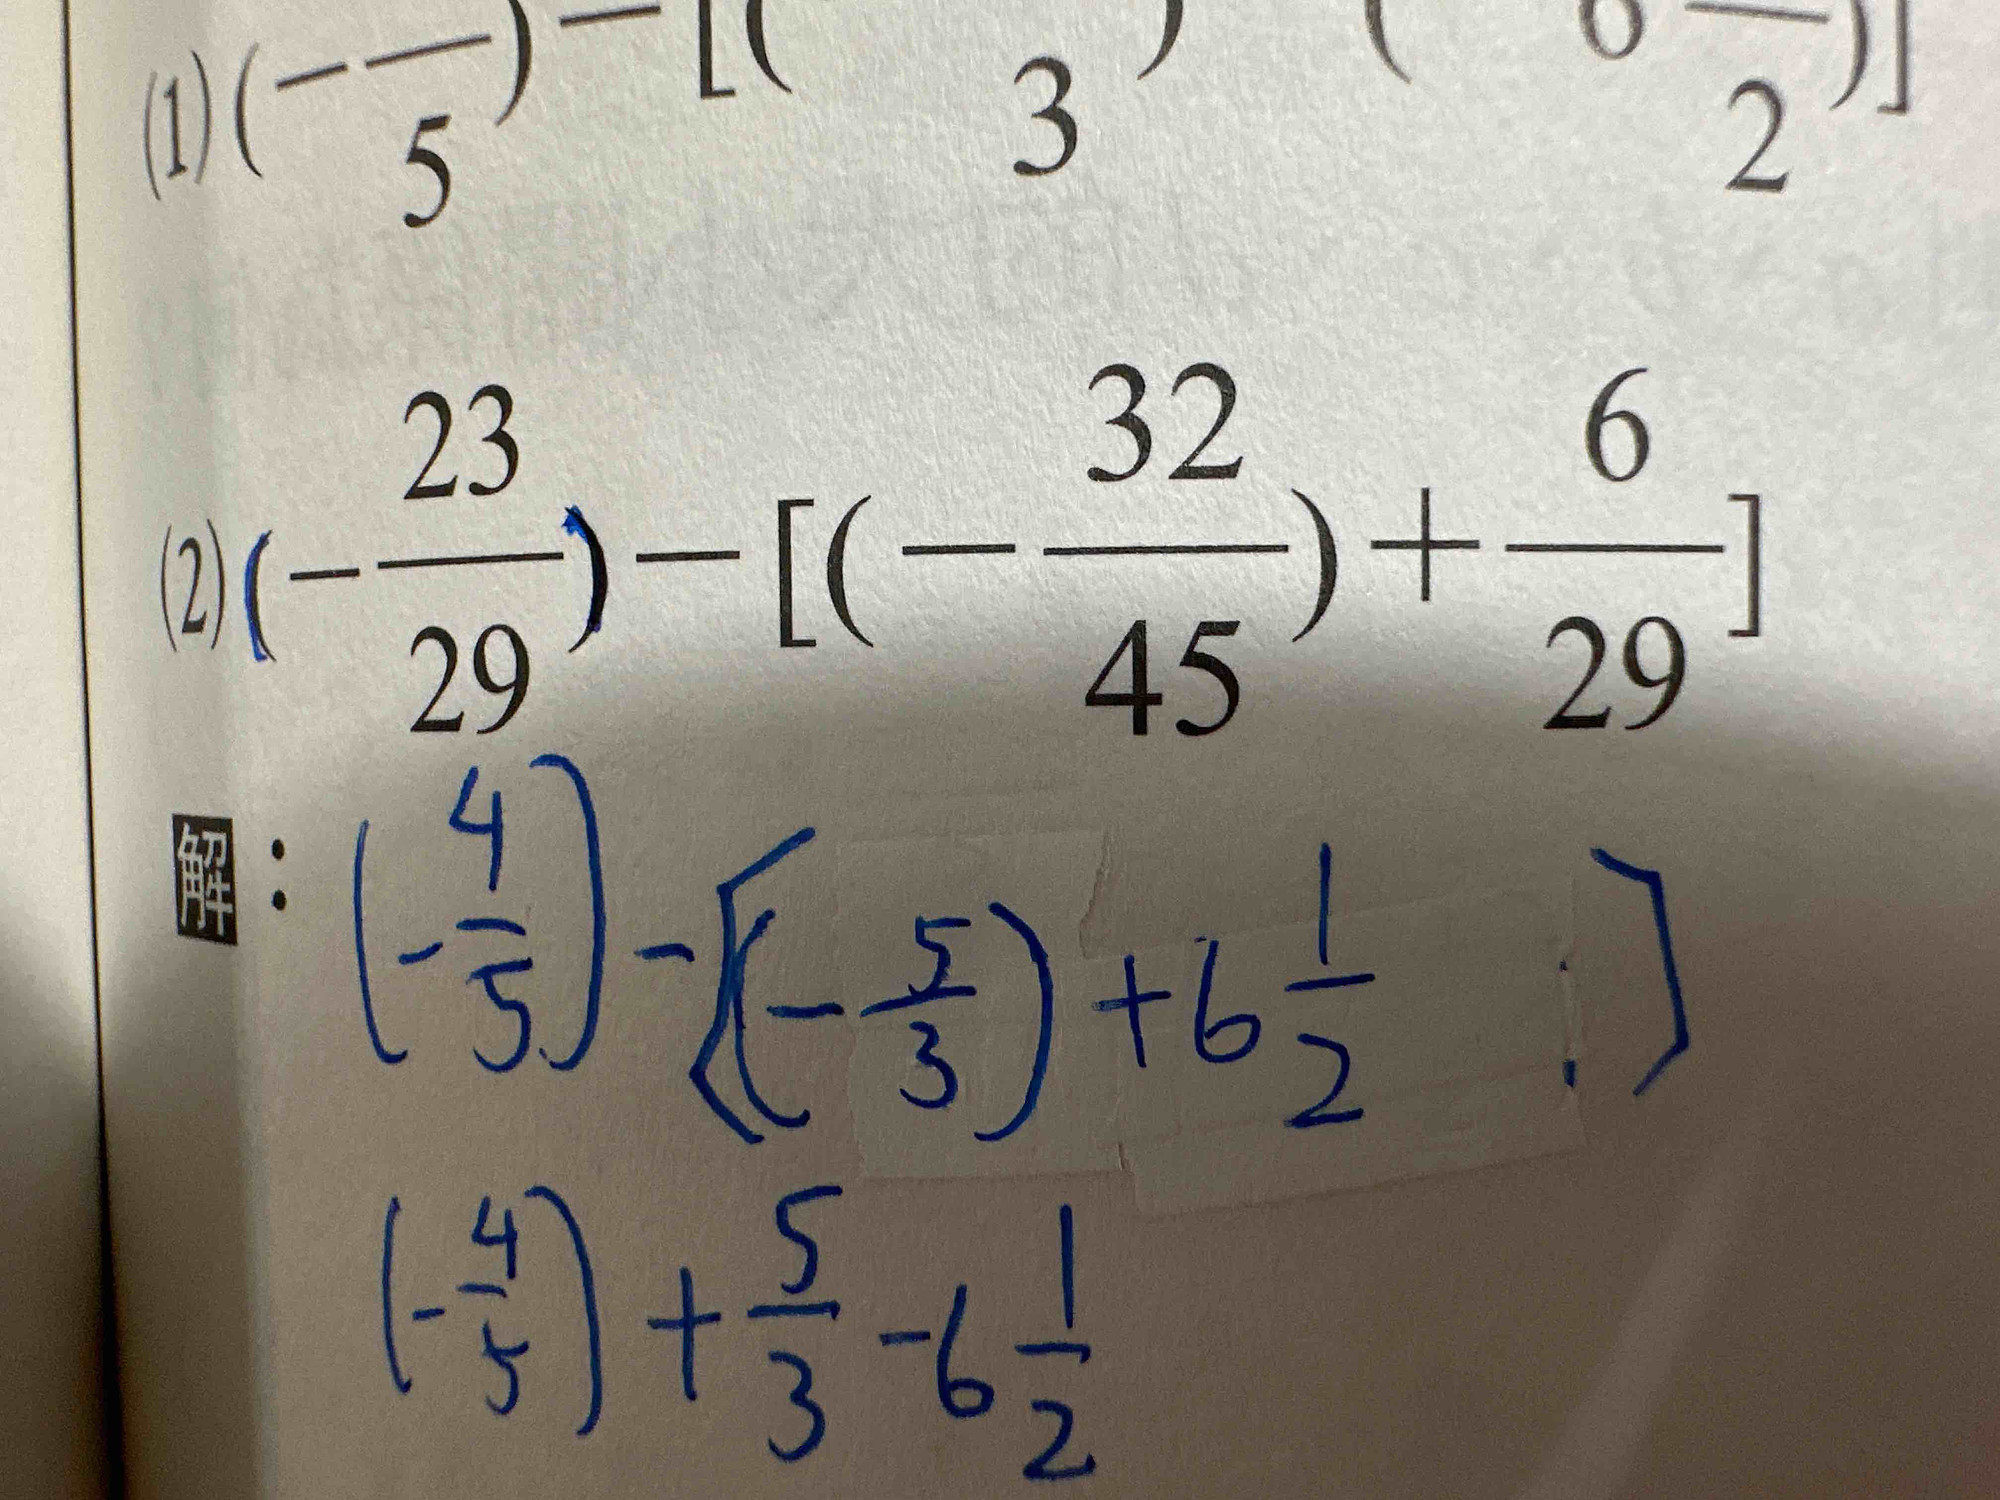 (1) (-—/5) - [( 3 ) ( 6—/2)]
(2) (-23/29) - [(-32/45) + 6/29]
解: (-4/5) - [(-5/3) + 6 1/2]
(-4/5) + 5/3 - 6 1/2